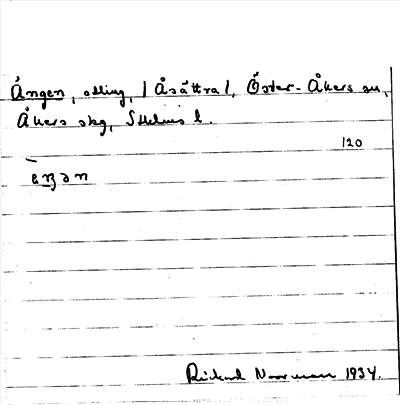 Ängen, odling, / Åsättra /, Öster-Åkers sn,
Åkers skg, Sthlms l.
120
ɛŋən
Rickard Norrman 1934.